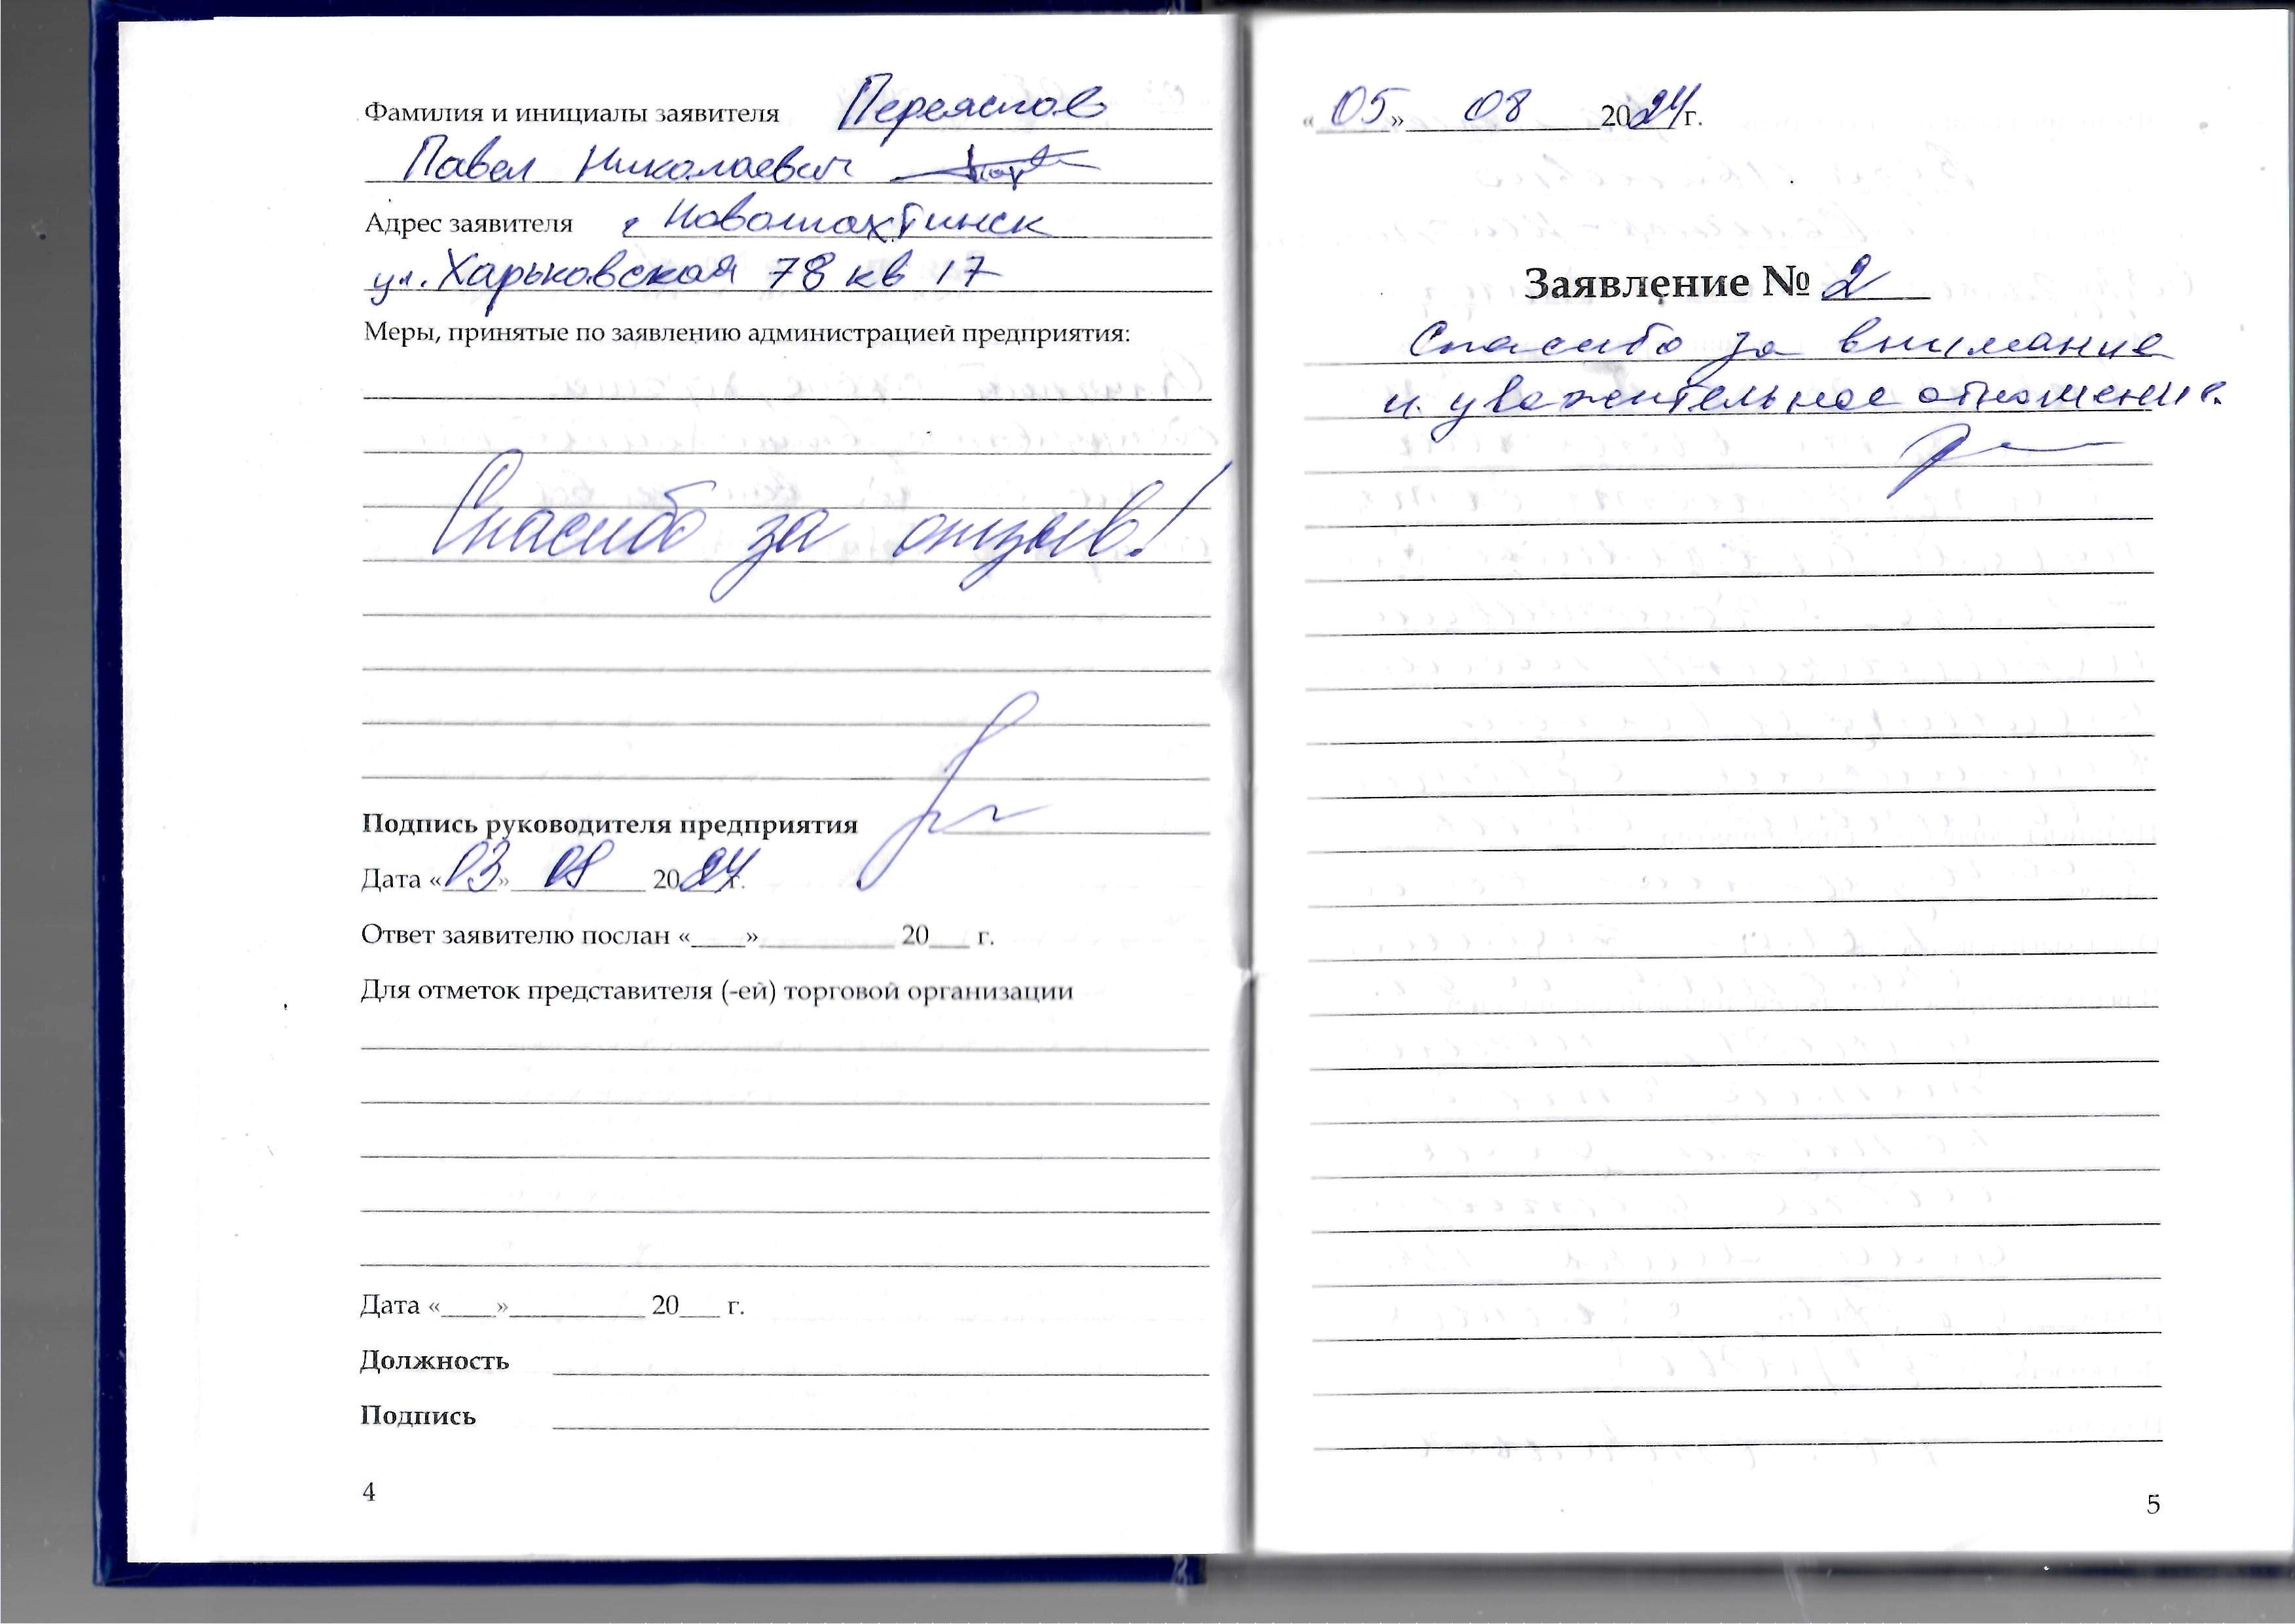 Фамилия и инициалы заявителя Переяслов
Павел Николаевич
Адрес заявителя г Новошахтинск
ул. Харьковская 78 кв 17
Меры, принятые по заявлению администрацией предприятия:
Спасибо за отзыв!
Подпись руководителя предприятия
Дата «03» 08 2024 г.
Ответ заявителю послан «____»__________ 20___ г.
Для отметок представителя (-ей) торговой организации
Дата «____»__________ 20___ г.
Должность
Подпись
4
«05» 08 2024 г.
Заявление № 2
Спасибо за внимание
и уважительное отношение.
5